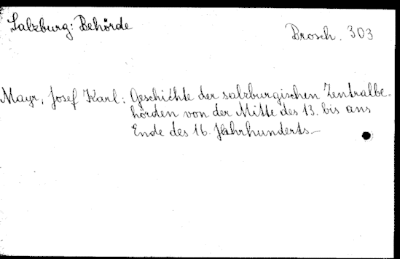 Salzburg: Behörde
Brosch. 303
Mayr, Josef Karl: Geschichte der salzburgischen Zentralbe
hörden von der Mitte des 13. bis ans
Ende des 16. Jahrhunderts